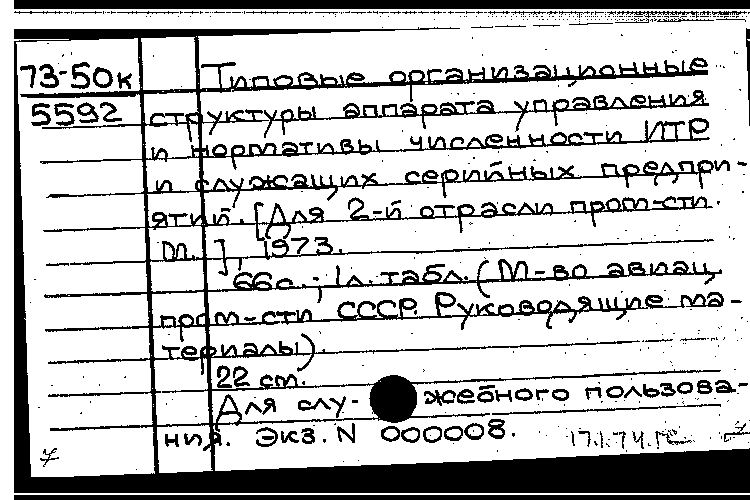 73-50к Типовые организационные
5592 структуры аппарата управления
и нормативы численности ИТР
и служащих серийных предпри-
ятий. [Для 2-й отрасли пром-сти.
М.], 1973.
66с.; 1л. табл. (М-во авиац.
пром-сти СССР. Руководящие ма-
териалы).
22 см.
Для слу- жебного пользова-
ния. Экз. N 000008.